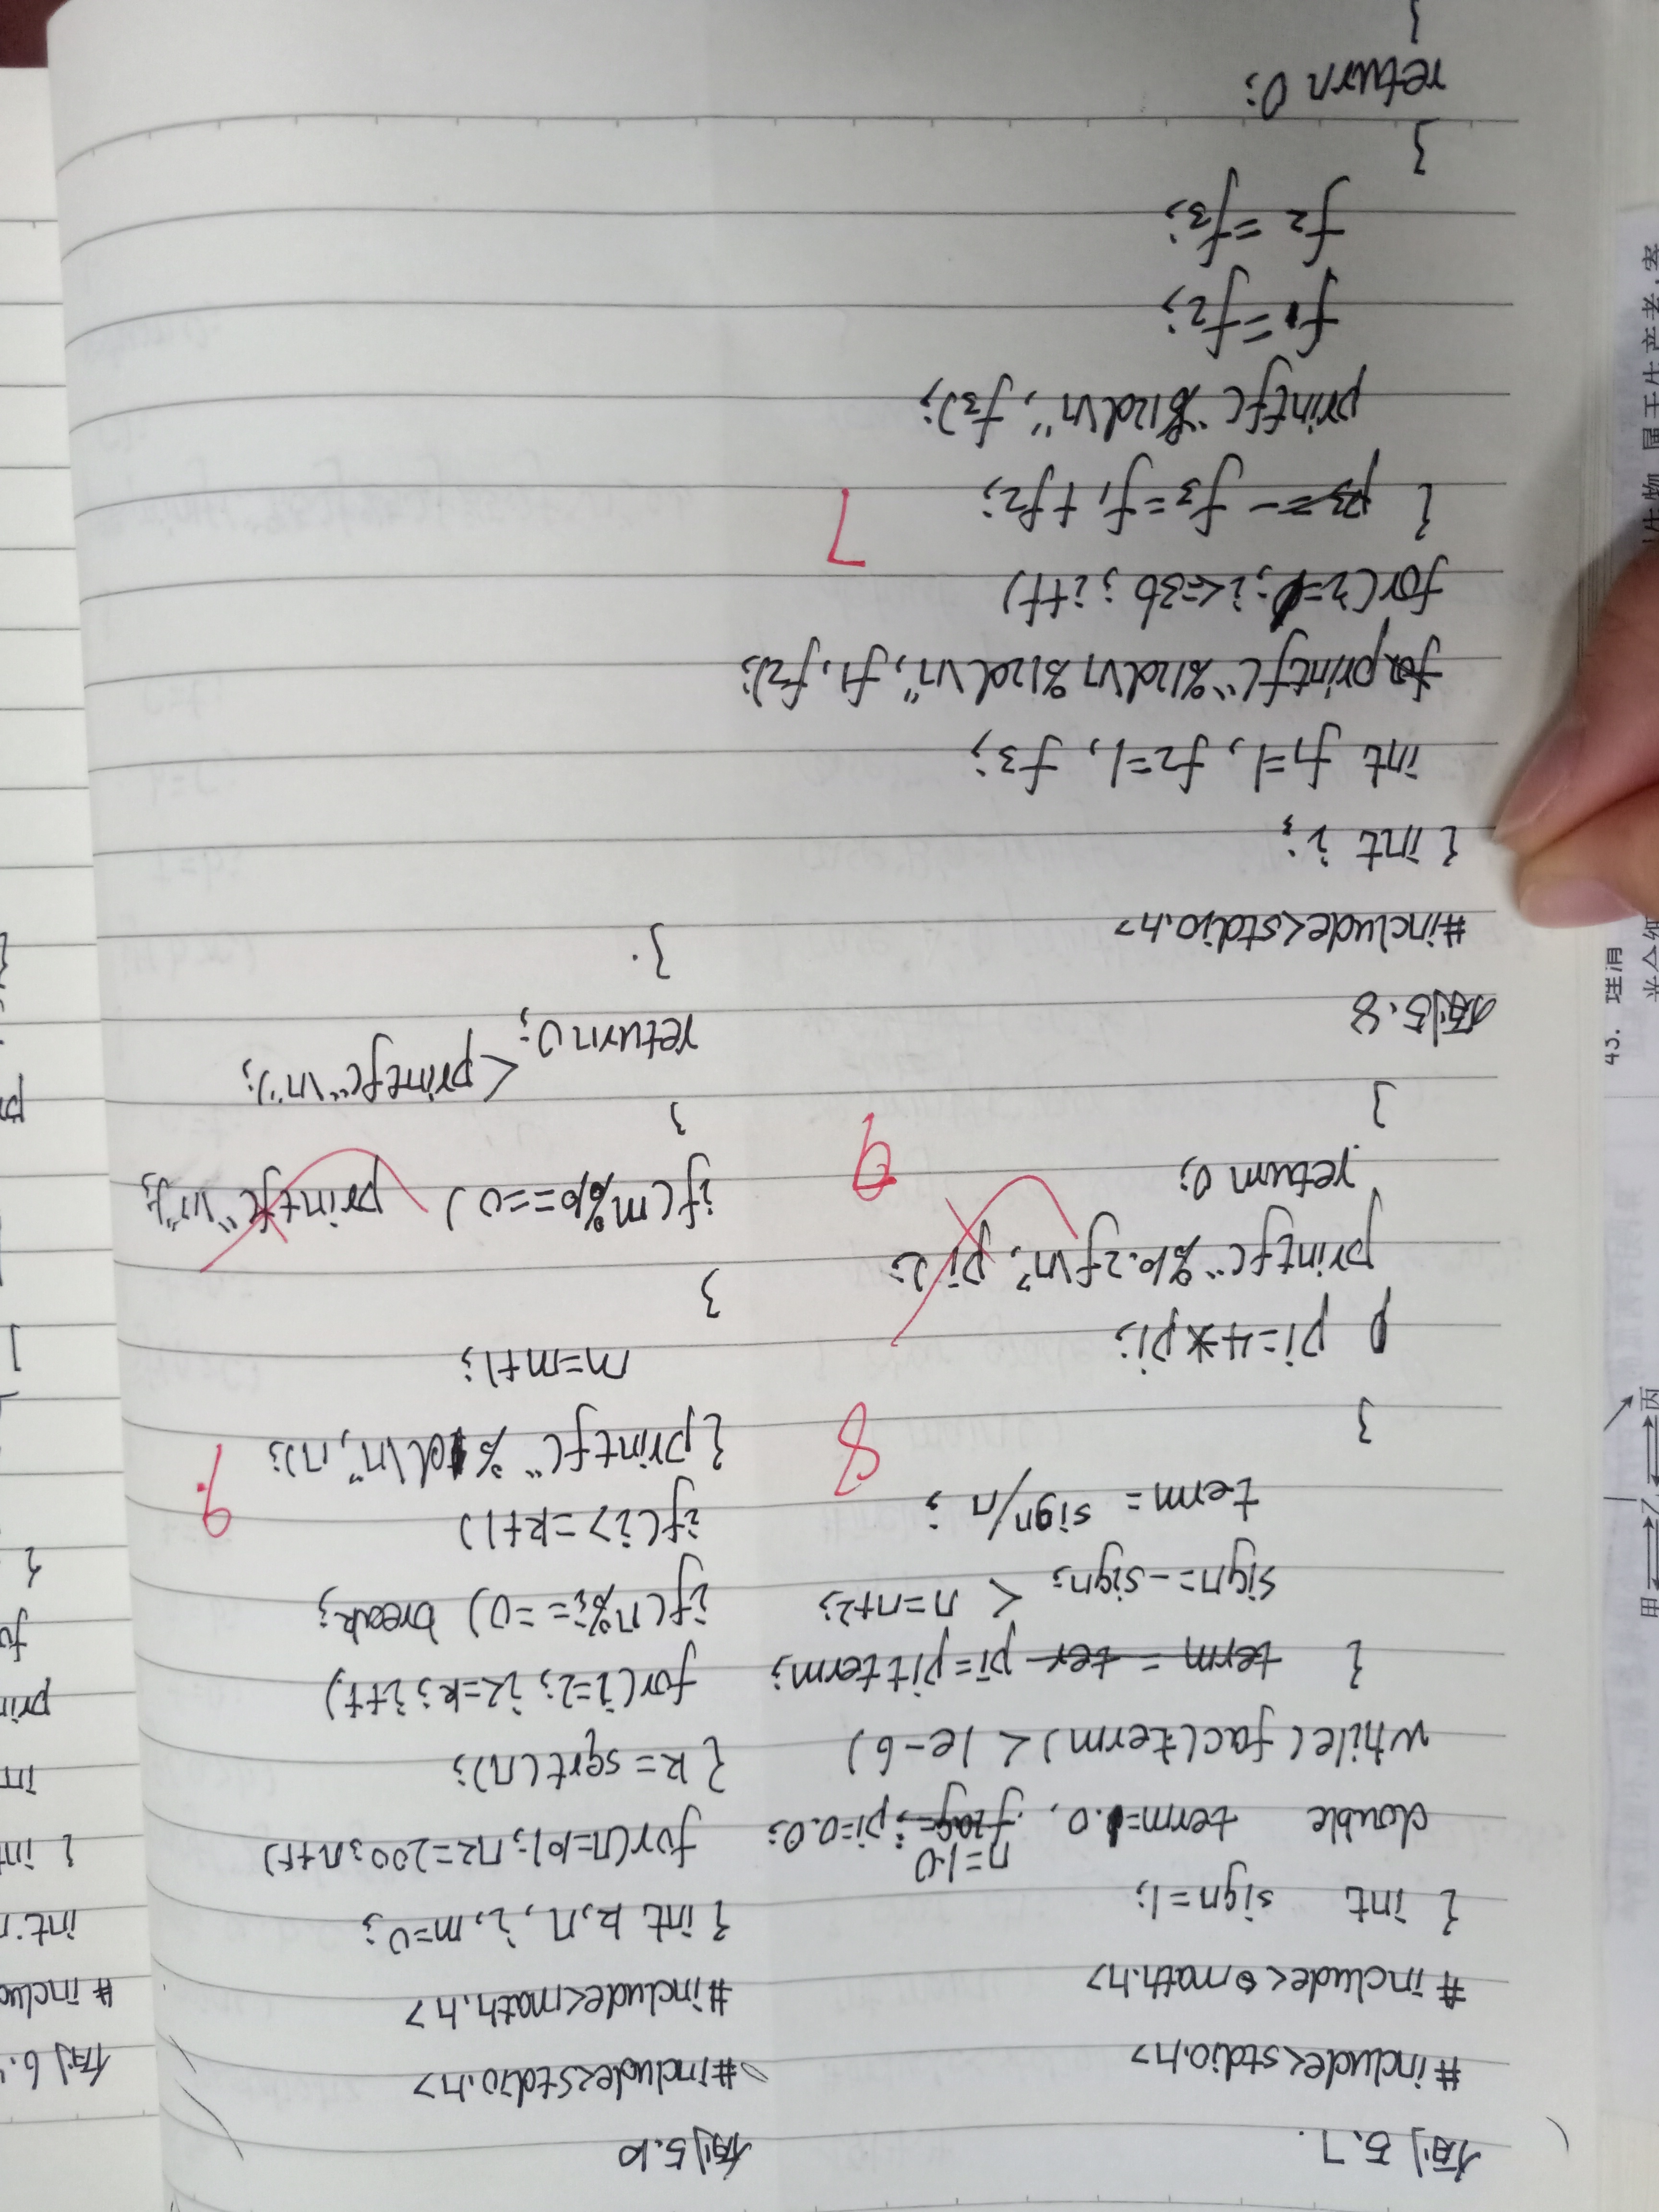 例5.7.
#include<stdio.h>
#include<math.h>
{ int sign=1;
n=1.0
double term=1.0, flag=; pi=0.0;
while(fac(term)<1e-6)
{ term = ter pi=pi+term;
sign=-sign; < n=n+2;
term= sign/n ;
8
}
p pi=4*pi;
printf("%10.2f\n", pi);
return 0;
9
}
例5.8
#include<stdio.h>
{ int i;
int f1=1, f2=1, f3;
printf("%12d\n %12d\n", f1, f2);
for(i=1; i<=36; i++)
{ p3=- f3=f1+f2;
7
printf("%12d\n", f3);
f1=f2;
f2=f3;
}
return 0;
}
例5.10
#include<stdio.h>
#include<math.h>
{ int k,n,i,m=0;
for(n=101; n<=200; n++)
{ k=sqrt(n);
for(i=2; i<=k; i++)
if(n%i==0) break;
if(i>=k+1)
9.
{ printf("%d\n", n);
m=m+1;
}
if(m%10==0) printf("\n");
}
<printf("\n");
return 0;
}.
例6.
#includ
{ in
prin
fo
{